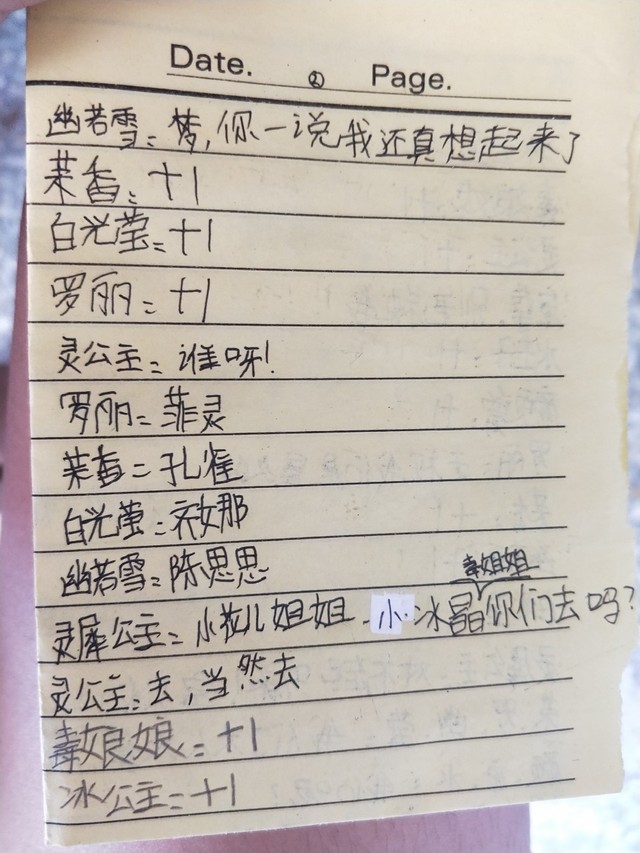 Date. Page.
幽若雪：梦,你一说我还真想起来了
茉香：+1
白光莹：+1
罗丽：+1
灵公主：谁呀!
罗丽：菲灵
茉香：孔雀
白光莹：亲娜
幽若雪：陈思思
毒姐姐
灵犀公主：小花儿姐姐、小冰晶你们去吗?
灵公主：去,当然去
毒娘娘：+1
冰公主：+1